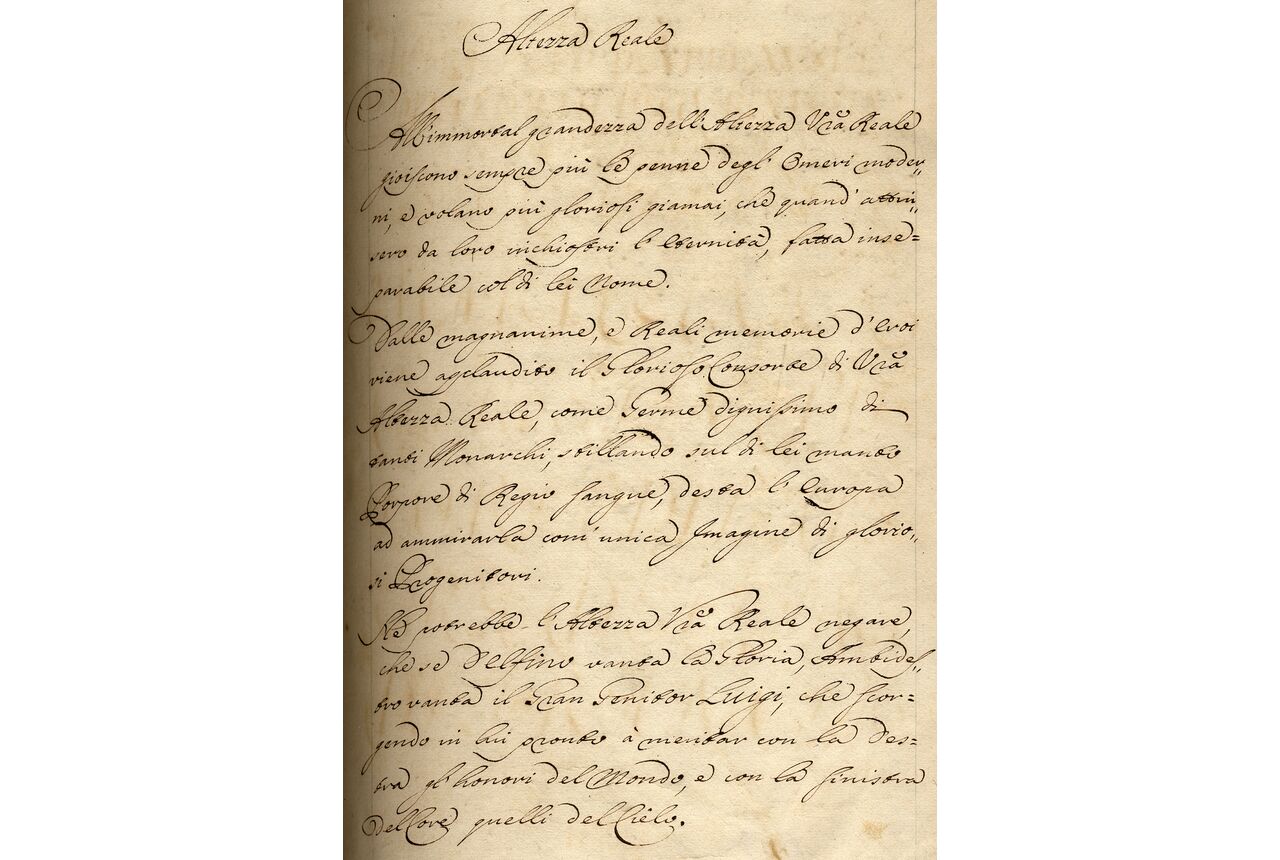 Altezza Reale
All'immortal grandezza dell'Altezza Vrã Reale
gioiscono sempre più le penne degl'Omeri moder,,
ni, e volano più gloriosi giamai, che quand'attin,,
sero da loro inchiostri l'eternità, fatta inse=
parabile col di lei Nome.
Dalle magnanime, e Reali memorie d'eroi
viene applaudito il Glorioso Consorte di Vrã
Altezza Reale, come Germe dignissimo di
tanti Monarchi, stillando sul di lei manto
Porpore di Regio sangue, desta l'Europa
ad ammirarla com'unica Imagine di glorio,,
si Progenitori.
Nè potrebbe l'Altezza Vrã Reale negare,
che se Delfino vanta la Gloria, Ambides,,
tro vanta il Gran Genitor Luigi, che scor=
gendo in lui pronto à meritar con la Des=
tra gl'honori del Mondo, e con la sinistra
del Core quelli del Cielo.